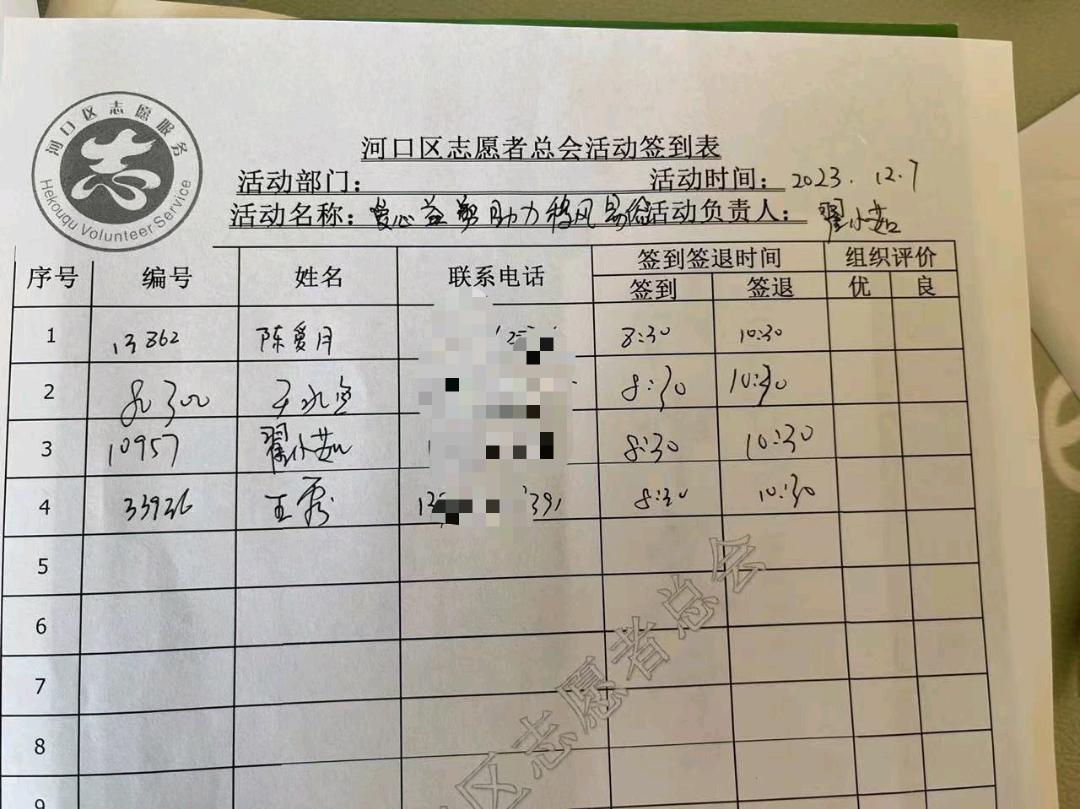 河口区志愿服务
Hekouqu Volunteer Service
河口区志愿者总会活动签到表
活动部门： 活动时间：2023.12.7
活动名称：爱心益剪助力移风易俗 活动负责人：翟小茹
序号 编号 姓名 联系电话 签到签退时间 组织评价
签到 签退 优 良
1 13862 陈爱月 8:30 10:30
2 80300 8:30 10:30
3 10957 翟小茹 8:30 10:30
4 33936 王秀 8:30 10:30
5
6
7
8
9
区志愿者总会